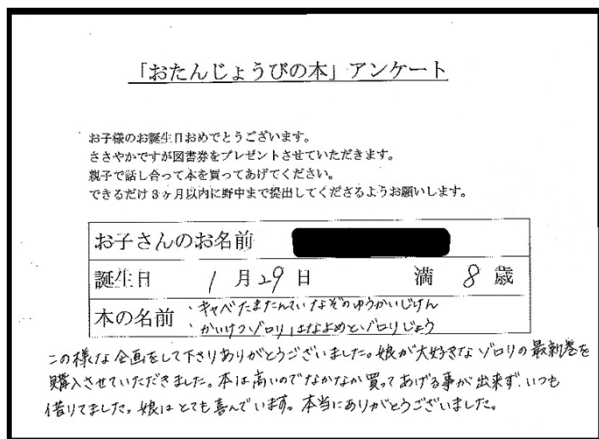 「おたんじょうびの本」アンケート
お子様のお誕生日おめでとうございます。
ささやかですが図書券をプレゼントさせていただきます。
親子で話し合って本を買ってあげてください。
できるだけ3ヶ月以内に野中まで提出してくださるようお願いします。
お子さんのお名前
誕生日 1月29日 満 8 歳
本の名前 ・キャベたまたんていなぞのゆうかいじけん
・かいけつゾロリ はなよめとゾロリじょう
この様な企画をして下さりありがとうございました。娘が大好きなゾロリの最新巻を
購入させていただきました。本は高いのでなかなか買ってあげる事が出来ず、いつも
借りてました。娘はとても喜んでいます。本当にありがとうございました。